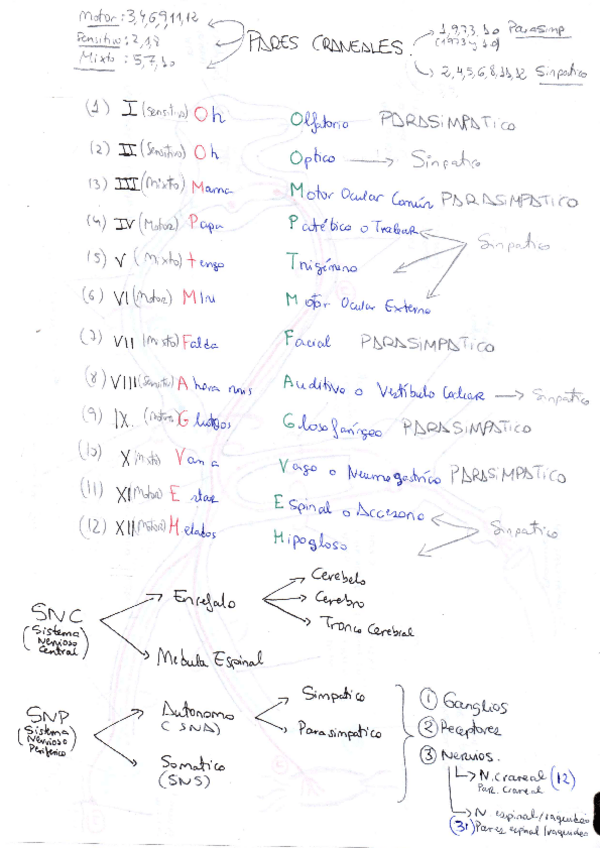 Motor: 3,4,6,9,11,12
Sensitivo: 2,1,8
Mixto: 5,7,10
PARES CRANEALES.
1,9,7,3,10 Parasimp
(1973 y 10)
2,4,5,6,8,11,12 Simpatico
(1) I (sensitivo) Oh Olfatorio PARASIMPATICO
(2) II (Sensitivo) Oh Optico Simpatico
(3) III (Mixto) Mama Motor Ocular Común PARASIMPATICO
(4) IV (Motor) Papa Patético o Troclear
Simpatico
(5) V (Mixto) tengo Trigémino
(6) VI (Motor) Mini Motor Ocular Externo
(7) VII (Mixto) Falda Facial PARASIMPATICO
(8) VIII (Sensitivo) Ahora mis Auditivo o Vestíbulo Coclear Simpatico
(9) IX. (Motor) Gluteos Glosofaríngeo PARASIMPATICO
(10) X (Mixto) Van a Vago o Neumogastrico PARASIMPATICO
(11) XI (Motor) Estar Espinal o Accesorio
Simpatico
(12) XII (Motor) Helados Hipogloso
SNC
(Sistema
Nervioso
Central)
Encefalo
Cerebelo
Cerebro
Tronco Cerebral
Medula Espinal
SNP
(Sistema
Nervioso
Periferico)
Autonomo
(SNA)
Simpatico
Parasimpatico
Somatico
(SNS)
1 Ganglios
2 Receptores
3 Nervios.
N. craneal (12)
Par. craneal
N. espinal/raquideo
(31) Pares espinal/raquideo